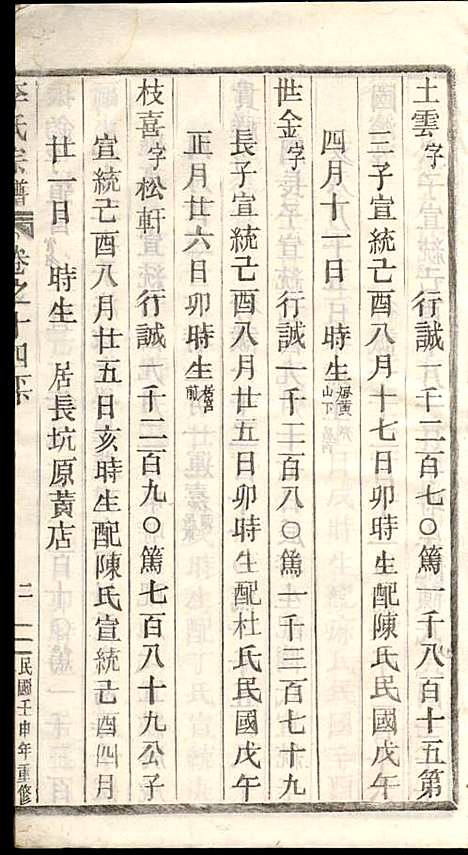 土雲字 行誠一千二百七〇篤一千八百十五第
三子宣統己酉八月十七日卯時生配陳氏民國戊午
四月十一日 時生居黃山下
世金字 行誠一千二百八〇篤一千三百七十九
長子宣統己酉八月廿五日卯時生配杜氏民國戊午
正月廿六日卯時生居宮前
枝喜字松軒 行誠一千二百九〇篤七百八十九公子
宣統己酉八月廿五日亥時生配陳氏宣統己酉四月
廿一日 時生 居長坑原黃店
李氏宗譜 卷之十四 二 民國壬申年重修